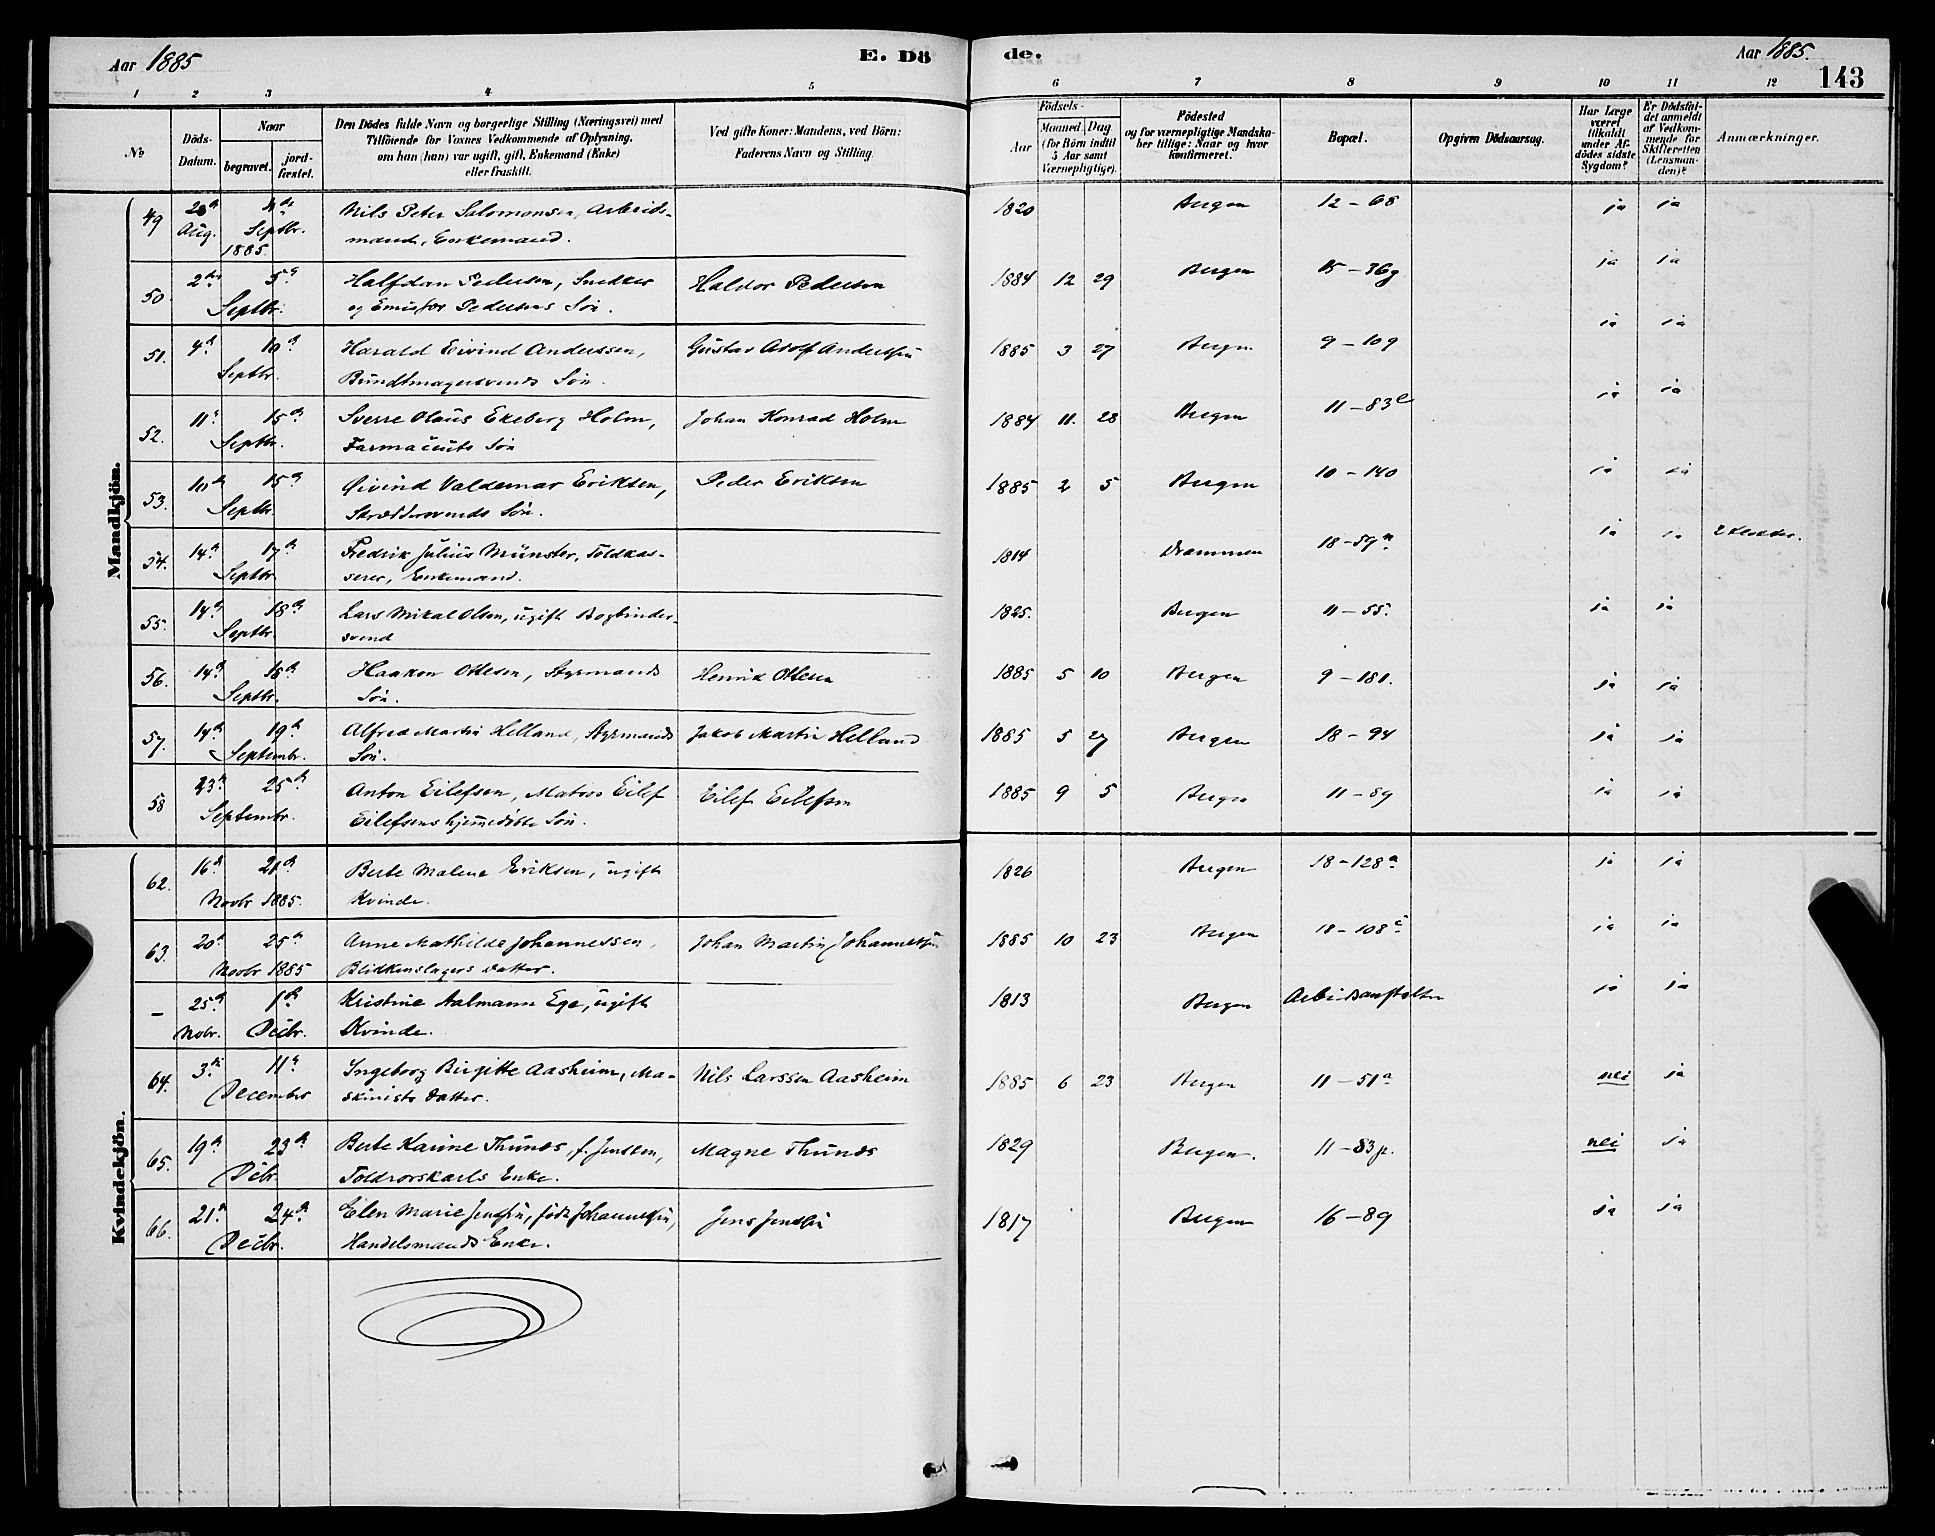 Aar 1885
E. Dö
de.
Aar 1885.
143
1 2 3 4 5 6 7 8 9 10 11 12
No
Döds-Datum.
Naar
begravet.
jord-fæstet.
Den Dödes fulde Navn og borgerlige Stilling (Næringsvei) med
Tilföiende for Voxnes Vedkommende af Oplysning,
om han (hun) var ugift, gift, Enkemand (Enke)
eller fraskilt.
Ved gifte Koner: Mandens, ved Börn:
Faderens Navn og Stilling.
Födsels-
Aar
Maaned. Dag
(for Börn indtil
5 Aar samt
Værnepligtige).
Födested
og for værnepligtige Mandska-
ber tillige: Naar og hvor
konfirmeret.
Bopæl.
Opgiven Dödsaarsag.
Har Læge
været
tilkaldt
under Af-
dödes sidste
Sygdom?
Er Dödsfal-
det anmeldt
af Vedkom-
mende for
Skifteretten
(Lensman-
den)?
Anmærkninger.
Mandkjön.
49 Aug. Septbr. 1885. Nils Peter Salomonsen, Arbeids-
mand, Enkemand. 1820 Bergen 12 – 68 ja ja
50 2den 5te Septbr. Halfdan Pedersen, Snedker
Pedersens Sön. Haldor Pedersen 1884 12 29 Bergen 15 – 36g ja ja
51. 4de 10de Septbr. Harald Eivind Anderssen,
Bundtmagersvends Sön. Gustav Adolf Anderssen 1885 3 27 Bergen 9 – 109 ja ja
52. 11te 15de Septbr. Sverre Olaus Ekeberg Holm,
Farmaceuts Sön Johan Konrad Holm 1884 11. 28 Bergen 11 – 83e ja ja
53. 10de 15de Septbr. Øivind Valdemar Eriksen,
Skræddersvends Sön. Peder Eriksen 1885 2 5 Bergen 10 – 140 ja ja
54. 14de 17de Septbr. Fredrik Julius Münster, Toldkas-
serer, Enkemand. 1814 Drammen 18 – 59a ja ja 2 Klokker.
55. 14de 18de Septbr. Lars Mikal Olsen, ugift Bogbinder-
svend 1825. Bergen 11 – 55. ja ja
56. 14de 18de Septbr. Haakon Ottesen, Styrmands
Sön. Henrik Ottesen 1885 5 10 Bergen 9 – 181. ja ja
57. 14de 19de Septembr. Alfred Martin Helland, Styrmands
Sön. Jakob Martin Helland 1885 5 27 Bergen 18 – 94 ja ja
58 23de 25de Septembr. Anton Eilefsen, Matros Eilef
Eilefsens hjemmedöbte Sön. Eilef Eilefsen 1885 9 5 Bergen 11 – 89 ja ja
Kvindekjön.
62. 16de 21de Novbr 1885. Berte Malene Eriksen, ugift
Kvinde. 1826 Bergen 18 – 128a ja ja
63. 20de 25de Novbr 1885 Anne Mathilde Johannessen,
Blikkenslagers Datter. Johan Martin Johannessen 1885 10 23 Bergen 18 – 108c ja ja
– 25de Nobr. 1ste Decbr. Kristine Aalmann Ege, ugift
Kvinde. 1813 Bergen Arbeidsanstalten ja ja
64. 3die 11te December Ingeborg Birgitte Aasheim, Ma-
skinists Datter. Nils Larssen Aasheim 1885 6 23 Bergen 11 – 51a nei ja
65. 19de 23de Decbr. Berte Karine Thunes, f. Jenssen,
Toldrorskarls Enke. Magne Thunes 1829 Bergen. 11 – 83p. nei ja
66. 21de 24de Decbr. Elen Marie Jenssen, födt Johannessen,
Handelsmands Enke. Jens Jenssen 1817 Bergen 16 – 89 ja ja